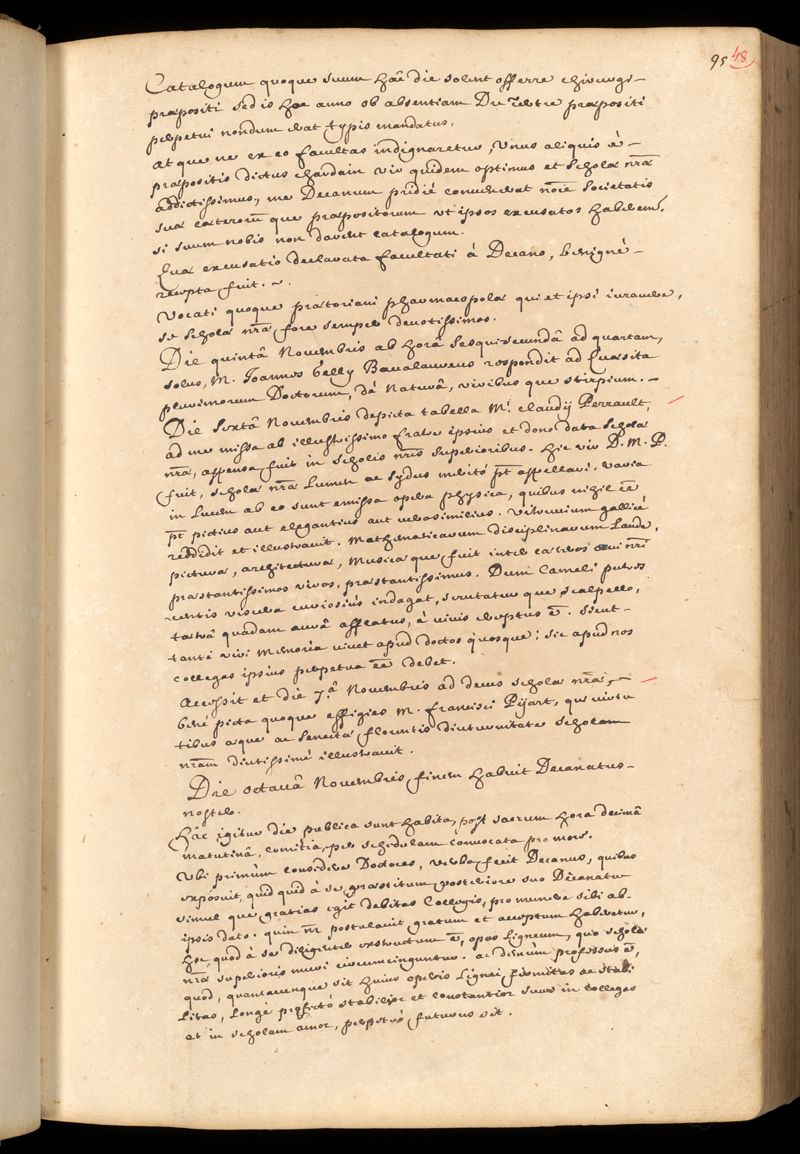 95 48
Catalogum quoque suum hâc die solent offerre chirurgi-
præpositi sed is hoc anno ob absentiam Du Tertre præpositi
perpetui nondum erat typis mandatus.
At que ne ex eo facultas indignaretur, Unus aliquis è-
præpositis dictus chardain vir quidem optimus et scholæ nrâ
addictissimus, me Decanum pridié convenerat noîe Societatis
suæ cæterorũ que præpositorum ut ipsos excusatos haberem,
si suum nobis non darent catalogum.
Quæ excusatio declarata facultati á Decano, benigné-
recepta fuit. ~ .
Vocati quoque prætoriani pharmacopolæ qui et ipsi iurarunt,
se scholæ nrâ fore semper devotissimos.
Die quintâ Novembris ab horâ sesquisecundâ ad quartam,
solus, M. Joannes Gelly Bavalaureus respondit ad Quæsita
plurimorum Doctorum, dé Naturâ, viribus que stirpium. -
Die Sextâ Novembris depicta tabella Mi. claudij Perrault,
ad me missa ab illustrissimo fratre ipsius et dono data Scholæ
nrâ, appensa fuit in scholis nrîs superioribus. Hic vir D. M. P.
fuit, scholæ nrâ Lumen ac sydus meritó pt appellari. Varia
in Lucem ab eo sunt emissa opera physica, quibus nihil eê
pt pictius aut elegantius aut verosimilius. Vitruvium gallicé
reddidit et illustravit. Mathematicarum disciplinarum Laude,
picturæ, architecturæ, Musicæ que fuit inter cæteros ævi nrî
præstantissimos viros, præstantissimus. Dum Cameli putres-
centis viscera curiosiùs indagat, scrutatur que scalpello,
tætrâ quadam aurâ afflatus, é vivis ereptus ê. Sicut-
tanti viri Memoria vivet apud doctos quosque; sic apud nos
collegas ipsius perpetua eê debet.
Accessit et die 7.â Novembris ad decus scholæ nrâ,-
bené picta quoque effigies M. francisci Pijart, qui virtu
tibus æque ac senectæ florentis diuturnitate scholam
nrâm diutissimé illustravit.
Die octavâ Novembris, finem habuit Decanatus-
noster.
Hâc igitur die publica sunt habita, post sacrum hora decimâ
matutinâ, comitia, per schedulam convocata pro more.
Ubi primùm consedere Doctores, verba fecit Decanus, quibus
exposuit, quid quid à se præstitum posteriore suo Decanatu
simul que gratias egit debitas Collegis, pro munere sibi ab-
ipsis dato. quin nr postulavit gratum et acceptum haberetur,
hoc, quod à se diligenter extructum ê, opus Ligneum, quo scholæ
nrâ superioris muri circumcinguntur. ac demùm professus ê,
quod, quantacunque sit huius operis Lignei firmitas ac stabi
litas, Longé profectó stabilior et constantior suus in collegas
et in scholam amor, perpetuó futurus sit.